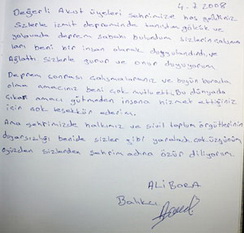 4.7.2008
Değerli Akut üyeleri şehrimize hoş geldiniz.
Sizlerle izmit depreminde tanıdım gölcük ve
yalovada deprem sabahı bulundum sizlerin çalışma
ları beni bir insan olarak duygulandırdı ve
Ağlattı sizlerle gurur ve onur duyuyorum
Deprem sonrası çalışmalarınız ve bugün burada
olma amacınız beni çok mutlu etti. Bu dünyada
çıkar amacı gütmeden insana hizmet ettiğiniz
için çok teşekkür ederim.
Ama şehrimizde halkımız ve sivil toplum örgütlerinin
duyarsızlığı benide sizler gibi yaraladı çok üzgünüm
sizlerden şehrim adına özür diliyorum
ALİ BORA
Balıkçı